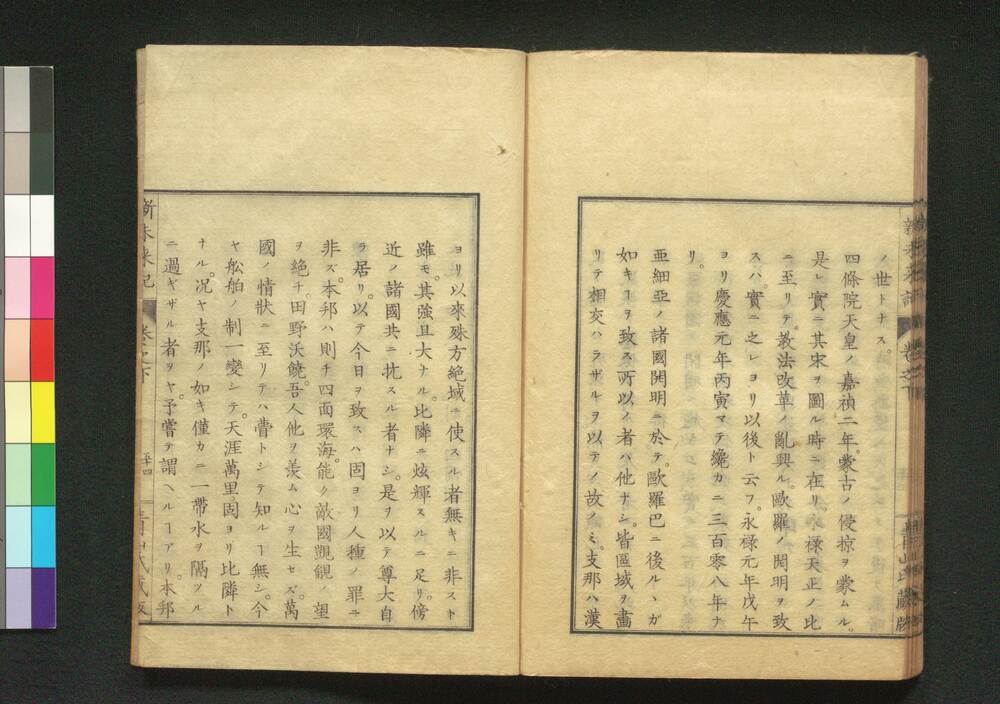 ノ世トナス。
四條院天皇ノ嘉禎二年。蒙古ノ侵掠ヲ蒙ムル。
是レ實ニ其宋ヲ圖ル時ニ在リ。永禄天正ノ比
ニ至リテ。教法改革ノ亂興ル歐羅ノ開明ヲ致
スハ。實ニ之レヨリ以後ト云フ。永禄元年戊午
ヨリ慶應元年丙寅マテ纔カニ三百零八年ナ
リ。
亜細亞ノ諸國開明ニ於テ。歐羅巴ニ後ルヽガ
如キヿヲ致ス所以ノ者ハ他ナシ。皆區域ヲ畵
リテ相交ハラザルヲ以テノ故ノミ。支那ハ漢
ヨリ以來殊方絶域ニ使スル者無キニ非スト
雖モ。其強且大ナル。比隣ニ炫輝スルニ足リ。傍
近ノ諸國共ニ抗スル者ナシ。是ヲ以テ尊大自
ラ居リ。以テ今日ヲ致スハ固ヨリ人種ノ罪ニ
非ズ。本邦ハ則チ四面環海。能ク敵國覬覦ノ望
ヲ絶チ。田野沃饒。吾人他ヲ羨ム心ヲ生セズ。萬
國ノ情狀ニ至リテハ瞢トシテ知ルヿ無シ。今
ヤ舩舶ノ制一變シテ。天涯萬里。固ヨリ比隣ト
ナル。况ヤ支那ノ如キ僅カニ一帶水ヲ隔ツル
ニ過ギザル者ヲヤ。予嘗テ謂ヘルヿアリ。本邦
新未來記 卷之下 五十四 青山氏藏版